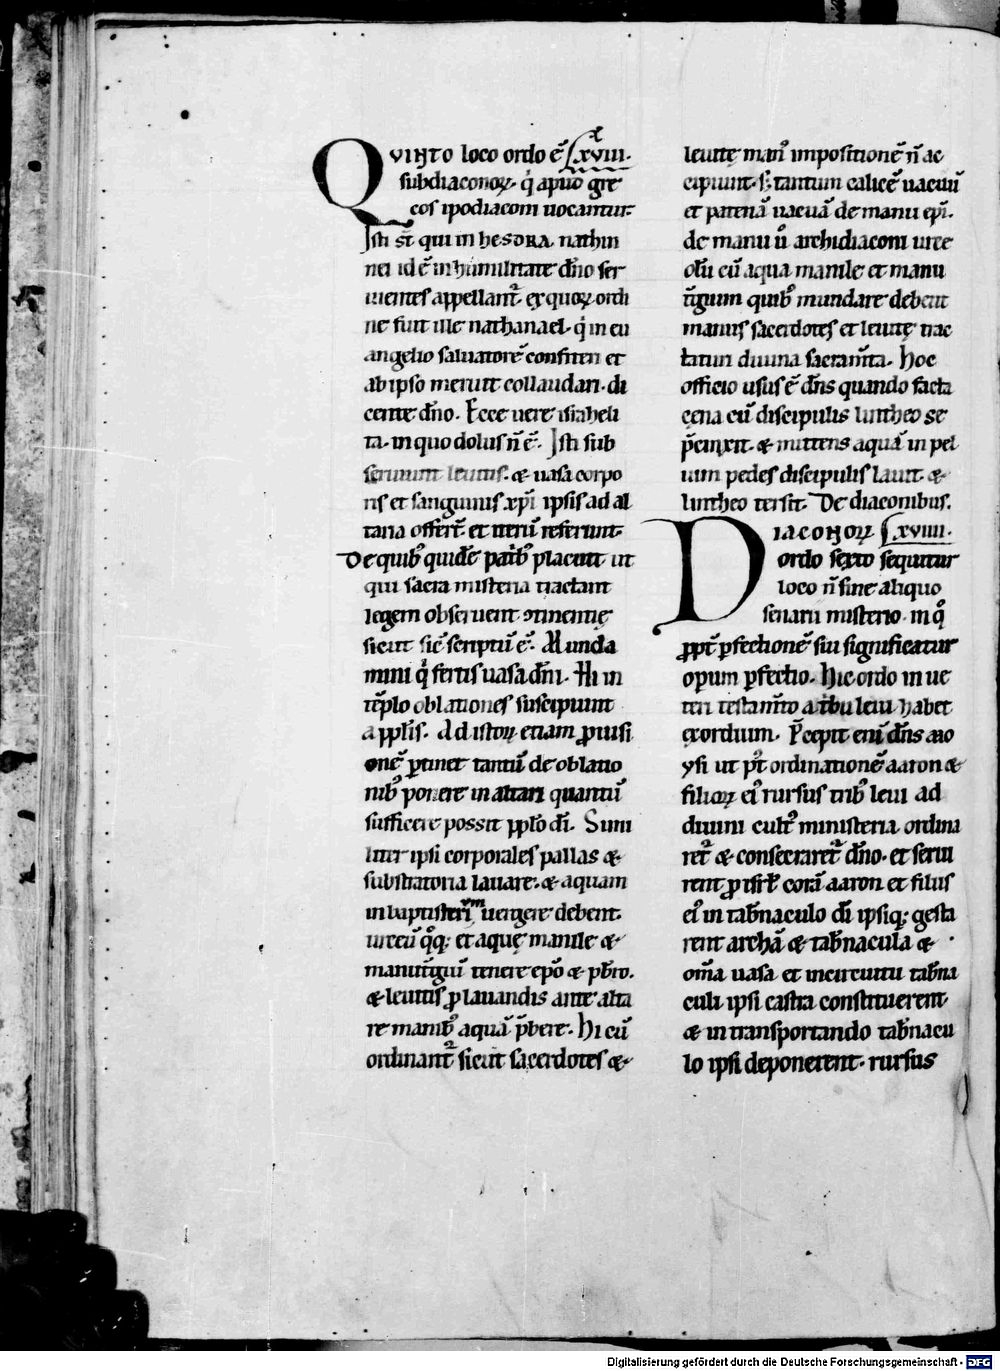 QVINTO loco ordo ē xviii.
subdiaconoꝝ. q̇ apud gre
cos ipodiaconi uocantur.
Isti st̄ qui in hesdra. nathin
nei id ē in humilitate dn̄o ser
uientes appellant᷑ ex quoꝝ ordi
ne fuit ille nathanael. q̇ in eu
angelio saluatorē confiteri et
ab ipso meruit collaudari. di
cente dn̄o. Ecce uere israheli
ta. in quo dolus n̄ ē. Isti sub
seruiunt leuitis. & uasa corpo
ris et sanguinis xp̄i ipsis ad al
taria offer̄t et iterū referunt.
De quibꝰ quidē patribꝰ placuit ut
qui sacra misteria tractant
legem obseruent ɔtinentię
sicut sic̄ scriptū ē. Munda
mini q̇ fertis uasa dn̄i. Hi in
tēplo oblationes suscipiunt
a pplīs. Ad istoꝝ etiam ꝓuisi
onē ꝑtinet tantū de oblatio
nibꝰ ponere in altari quantū
sufficere possit pplo dī. Simi
liter ipsi corporales pallas &
substratoria lauare. & aquam
in baptisterium uergere debent.
urceū q̊q; et aquę manile &
manut̄giū tenere epo & pb̄ro.
& leuitis ꝓ lauandis ante alta
re manibꝰ aquā p̄bere. Hi cū
ordinant᷑ sicut sacerdotes &
leuitę manꝰ impositionē n̄ ac
cipiunt. s; tantum calicē uacuū
et patenā uacuā de manu epi.
de manu ū archidiaconi urce
olū cū aqua manile et manu
t̄gium quibꝰ mundare debeat
manus sacerdotes et leuitę trac
taturi diuina sacram̄ta. Hoc
officio usus ē dn̄s quando facta
cęna cū discipulis lintheo se
p̄cinxit. & mittens aquā in pel
uim pedes discipulis lauit. &
lintheo tersit. De diaconibus.
DIACONOꝝ xviiii.
ordo sexto sequitur
loco n̄ sine aliquo
senarii misterio. in q̊
ꝓpt̄ ꝑfectionē sui significatur
operum ꝑfectio. Hic ordo in ue
teri testam̄to a tribu leui habet
exordium. P̄cepit enī dn̄s mo
ysi ut p̊t ordinationē aaron &
filioꝝ eiꝰ rursus tribꝰ leui ad
diuini cultꝰ ministeria ordina
ret᷑ & consecraret᷑ dn̄o. et serui
rent ꝓ isrl̄ corā aaron et filiis
eiꝰ in tab̄naculo dī ipsiq; gesta
rent archā & tab̄nacula &
om̄a uasa et in circuitu tab̄na
culi ipsi castra constituerent.
& in transportando tab̄nacu
lo ipsi deponerent. rursus
Digitalisierung gefördert durch die Deutsche Forschungsgemeinschaft - DFG